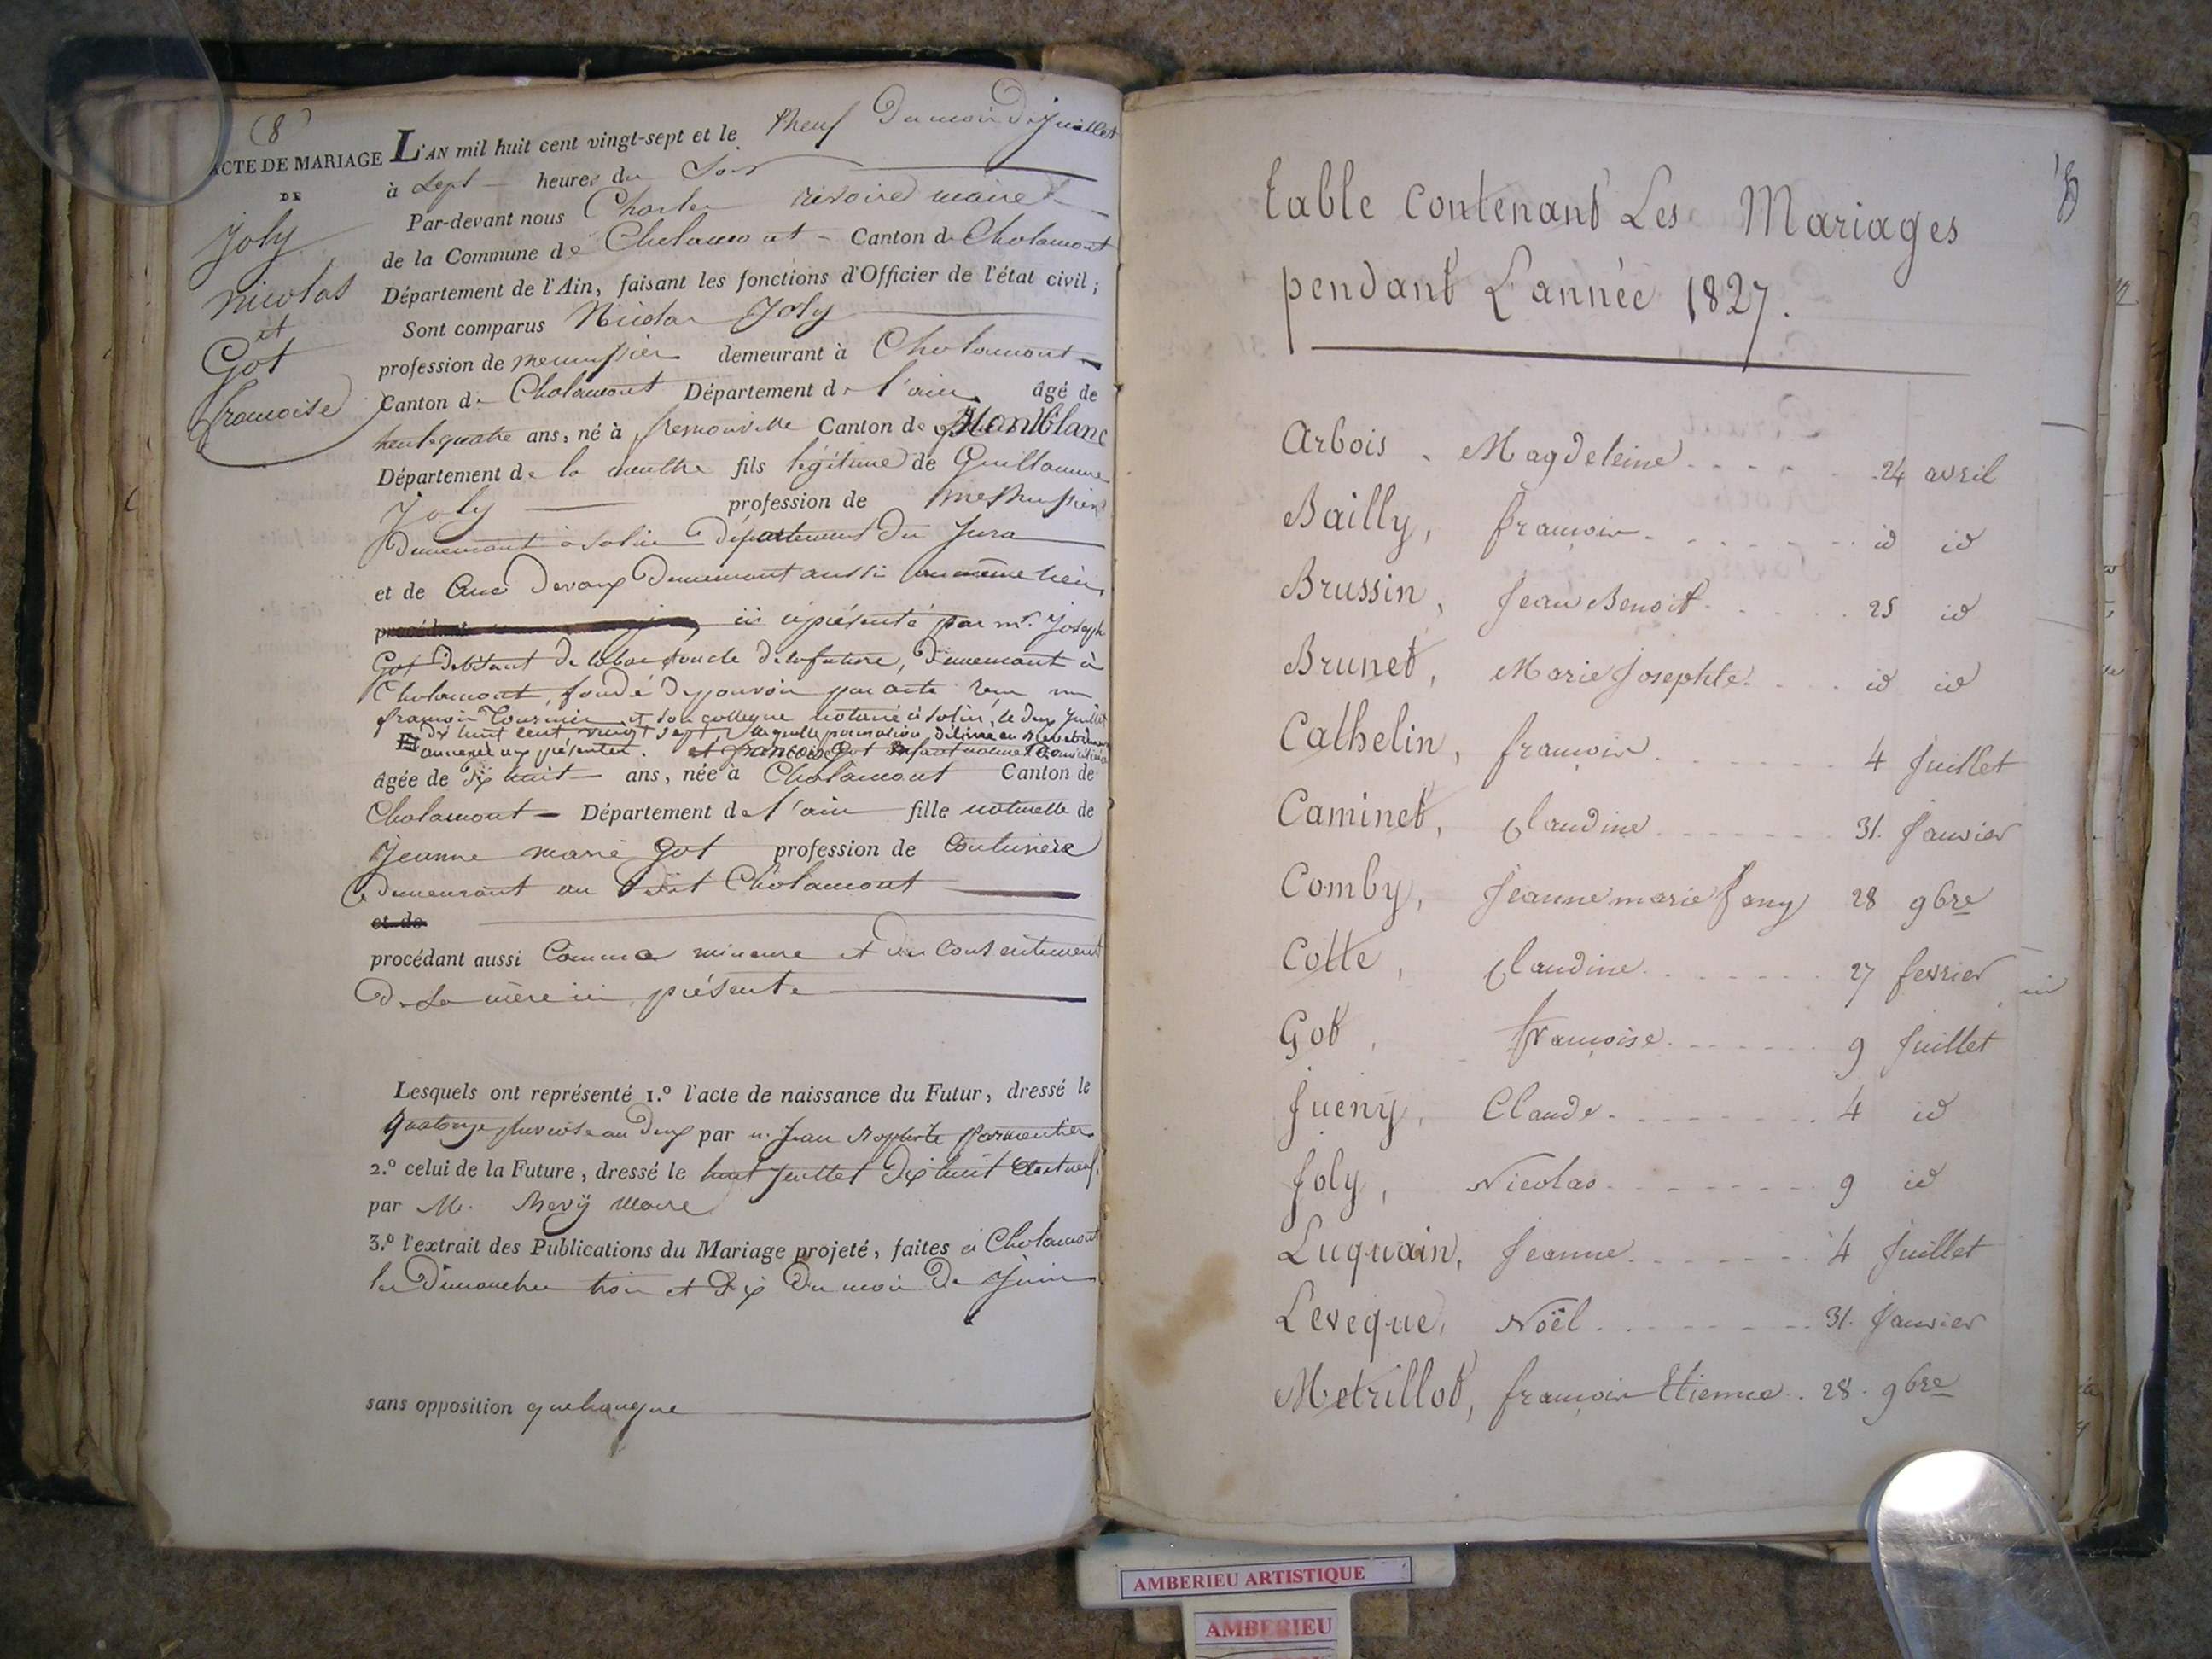 (8)
ACTE DE MARIAGE
DE
Joly
nicolas
et
Got
francoise
L'AN mil huit cent vingt-sept et le Neuf Du mois De Juillet
à Sept heures du Soir
Par-devant nous Charles rivoire maire
de la Commune de Chalamont Canton de Chalamont
Département de l'Ain, faisant les fonctions d'Officier de l'état civil ;
Sont comparus Nicolas Joly
profession de menuissier demeurant à Chalamont
Canton de Chalamont Département de l'ain âgé de
trente quatre ans, né à fremonville Canton de Blanc
Département de la meurthe fils légitime de Guillaume
Joly profession de menuissier
Demeurant à Salins Département Du Jura
et de Anne Devaux Demeurant aussi au même lieu,
procédant ici représenté par mr. Joseph
Got Debitant De tabac oncle De la future, Demeurant à
Chalamont, fondé De pouvoir par acte reçu
françois et son collegue notaire à Salins, le deux Juillet
Dix huit cent vingt sept laquelle procuration délivrée en Brevet
annexée aux présentes. et françoise Got Enfant naturel
âgée de Dix huit ans, née à Chalamont Canton de
Chalamont Département de l'ain fille naturelle de
Jeanne marie Got profession de Couturiere
Demeurant au Dit Chalamont
et de
procédant aussi Comme mineure et Du Consentement
De Sa mère ici présente
Lesquels ont représenté 1.º l'acte de naissance du Futur, dressé le
quatorze pluviose an Deux par m. Jean Baptiste parmentier
2.º celui de la Future, dressé le huit Juillet Dix huit Cent neuf,
par M. Maire
3.º l'extrait des Publications du Mariage projeté, faites à Chalamont
les Dimanches trois et Dix Du mois De Juin
sans opposition quelconque
table contenant Les Mariages
pendant L'année 1827.
Arbois . Magdeleine 24 avril
Bailly, françois id id
Brussin, Jean Benoit 25 id
Brunet, Marie Josephte id id
Cathelin, françois 4 Juillet
Caminet, Claudine 31. Janvier
Comby, Jeanne marie fany 28 9bre
Cotte, Claudine 27 fevrier
Got, françoise 9 Juillet
Jueny, Claude 4 id
Joly, Nicolas 9 id
Luquain, Jeanne 4 Juillet
Leveque, Noël 31. Janvier
Metrillot, françois Etienne . 28. 9bre
AMBERIEU ARTISTIQUE
AMBERIEU